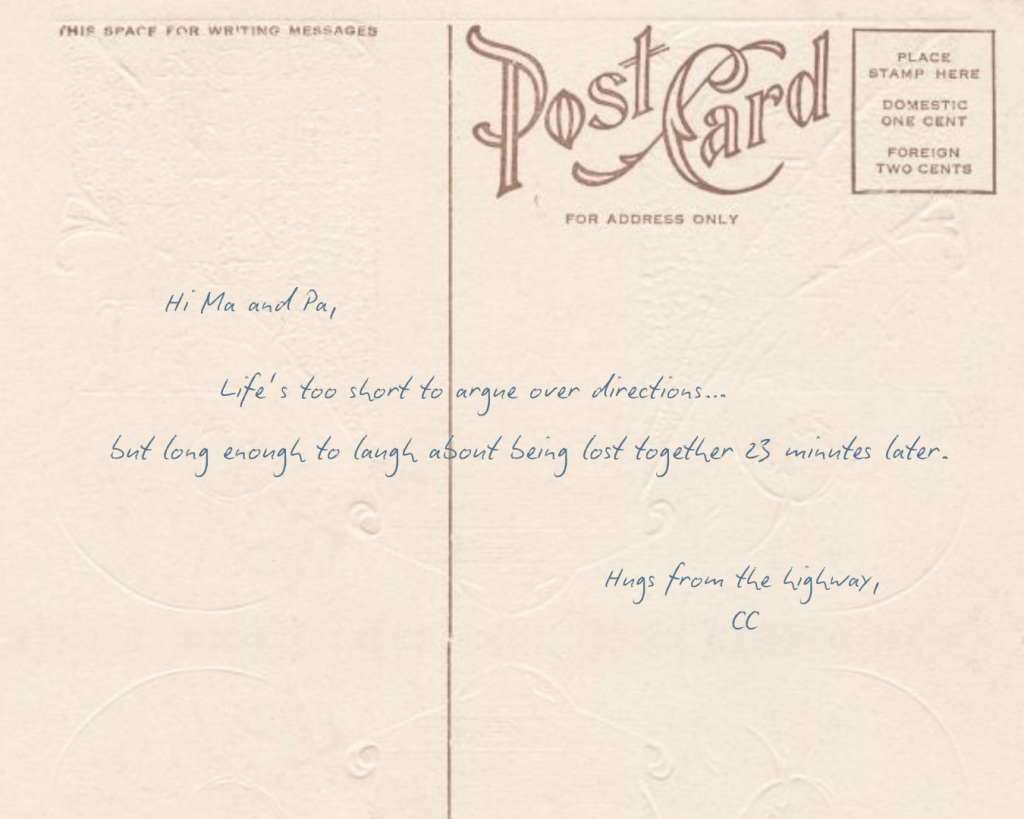 THIS SPACE FOR WRITING MESSAGES
Post Card
PLACE
STAMP HERE
DOMESTIC
ONE CENT
FOREIGN
TWO CENTS
FOR ADDRESS ONLY
Hi Ma and Pa,
Life's too short to argue over directions...
but long enough to laugh about being lost together 23 minutes later.
Hugs from the highway,
CC